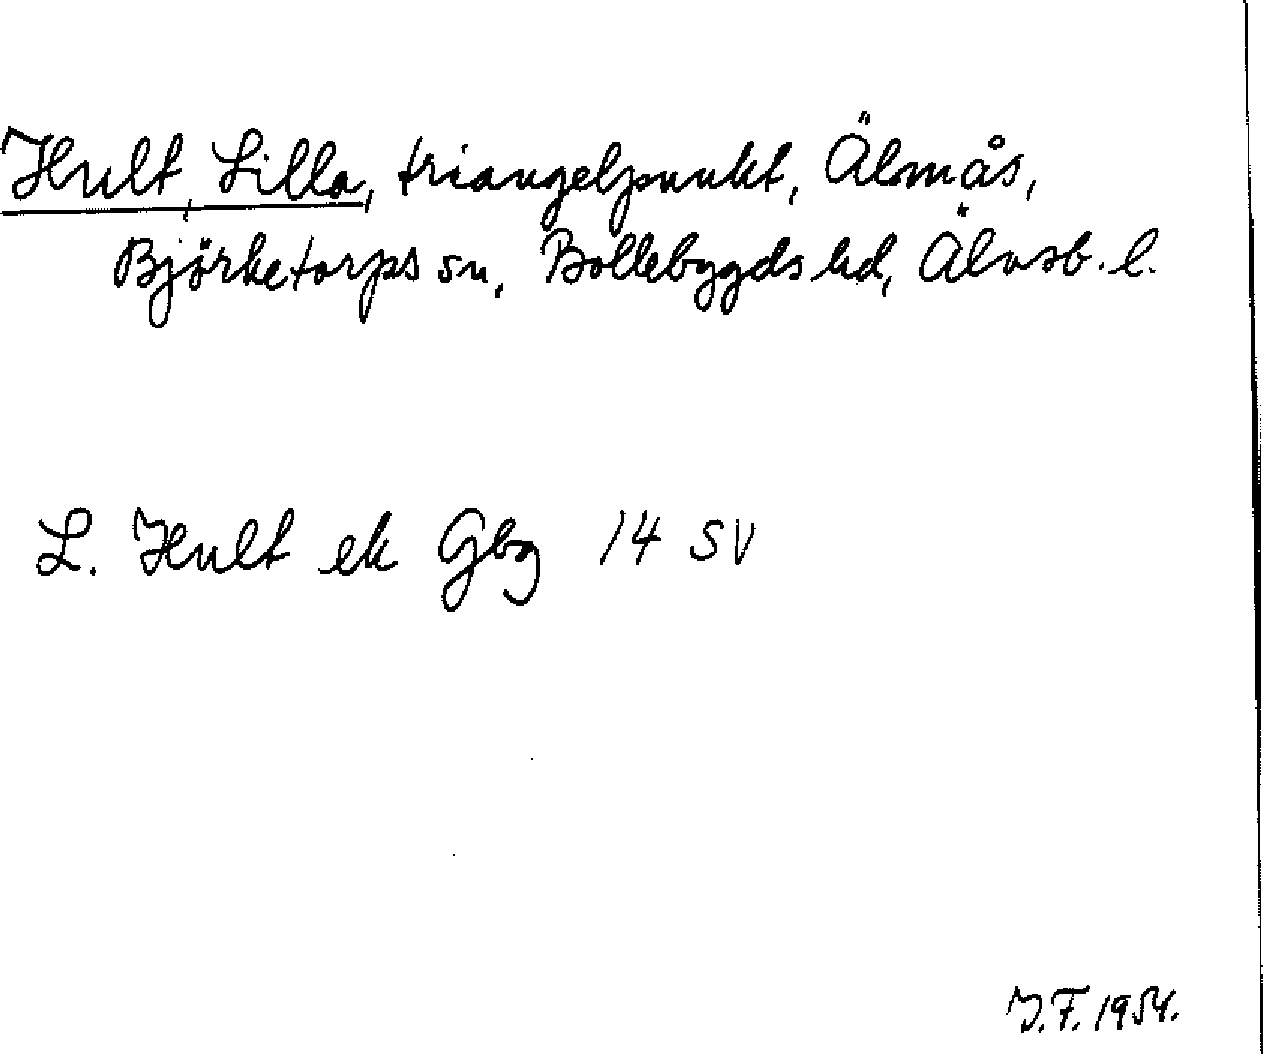 Hult, Lilla, triangelpunkt, Älmås,
Björketorps sn, Bollebygds hd, Älvsb. l.
L. Hult ek Gbg 14 SV
J.F. 1954.